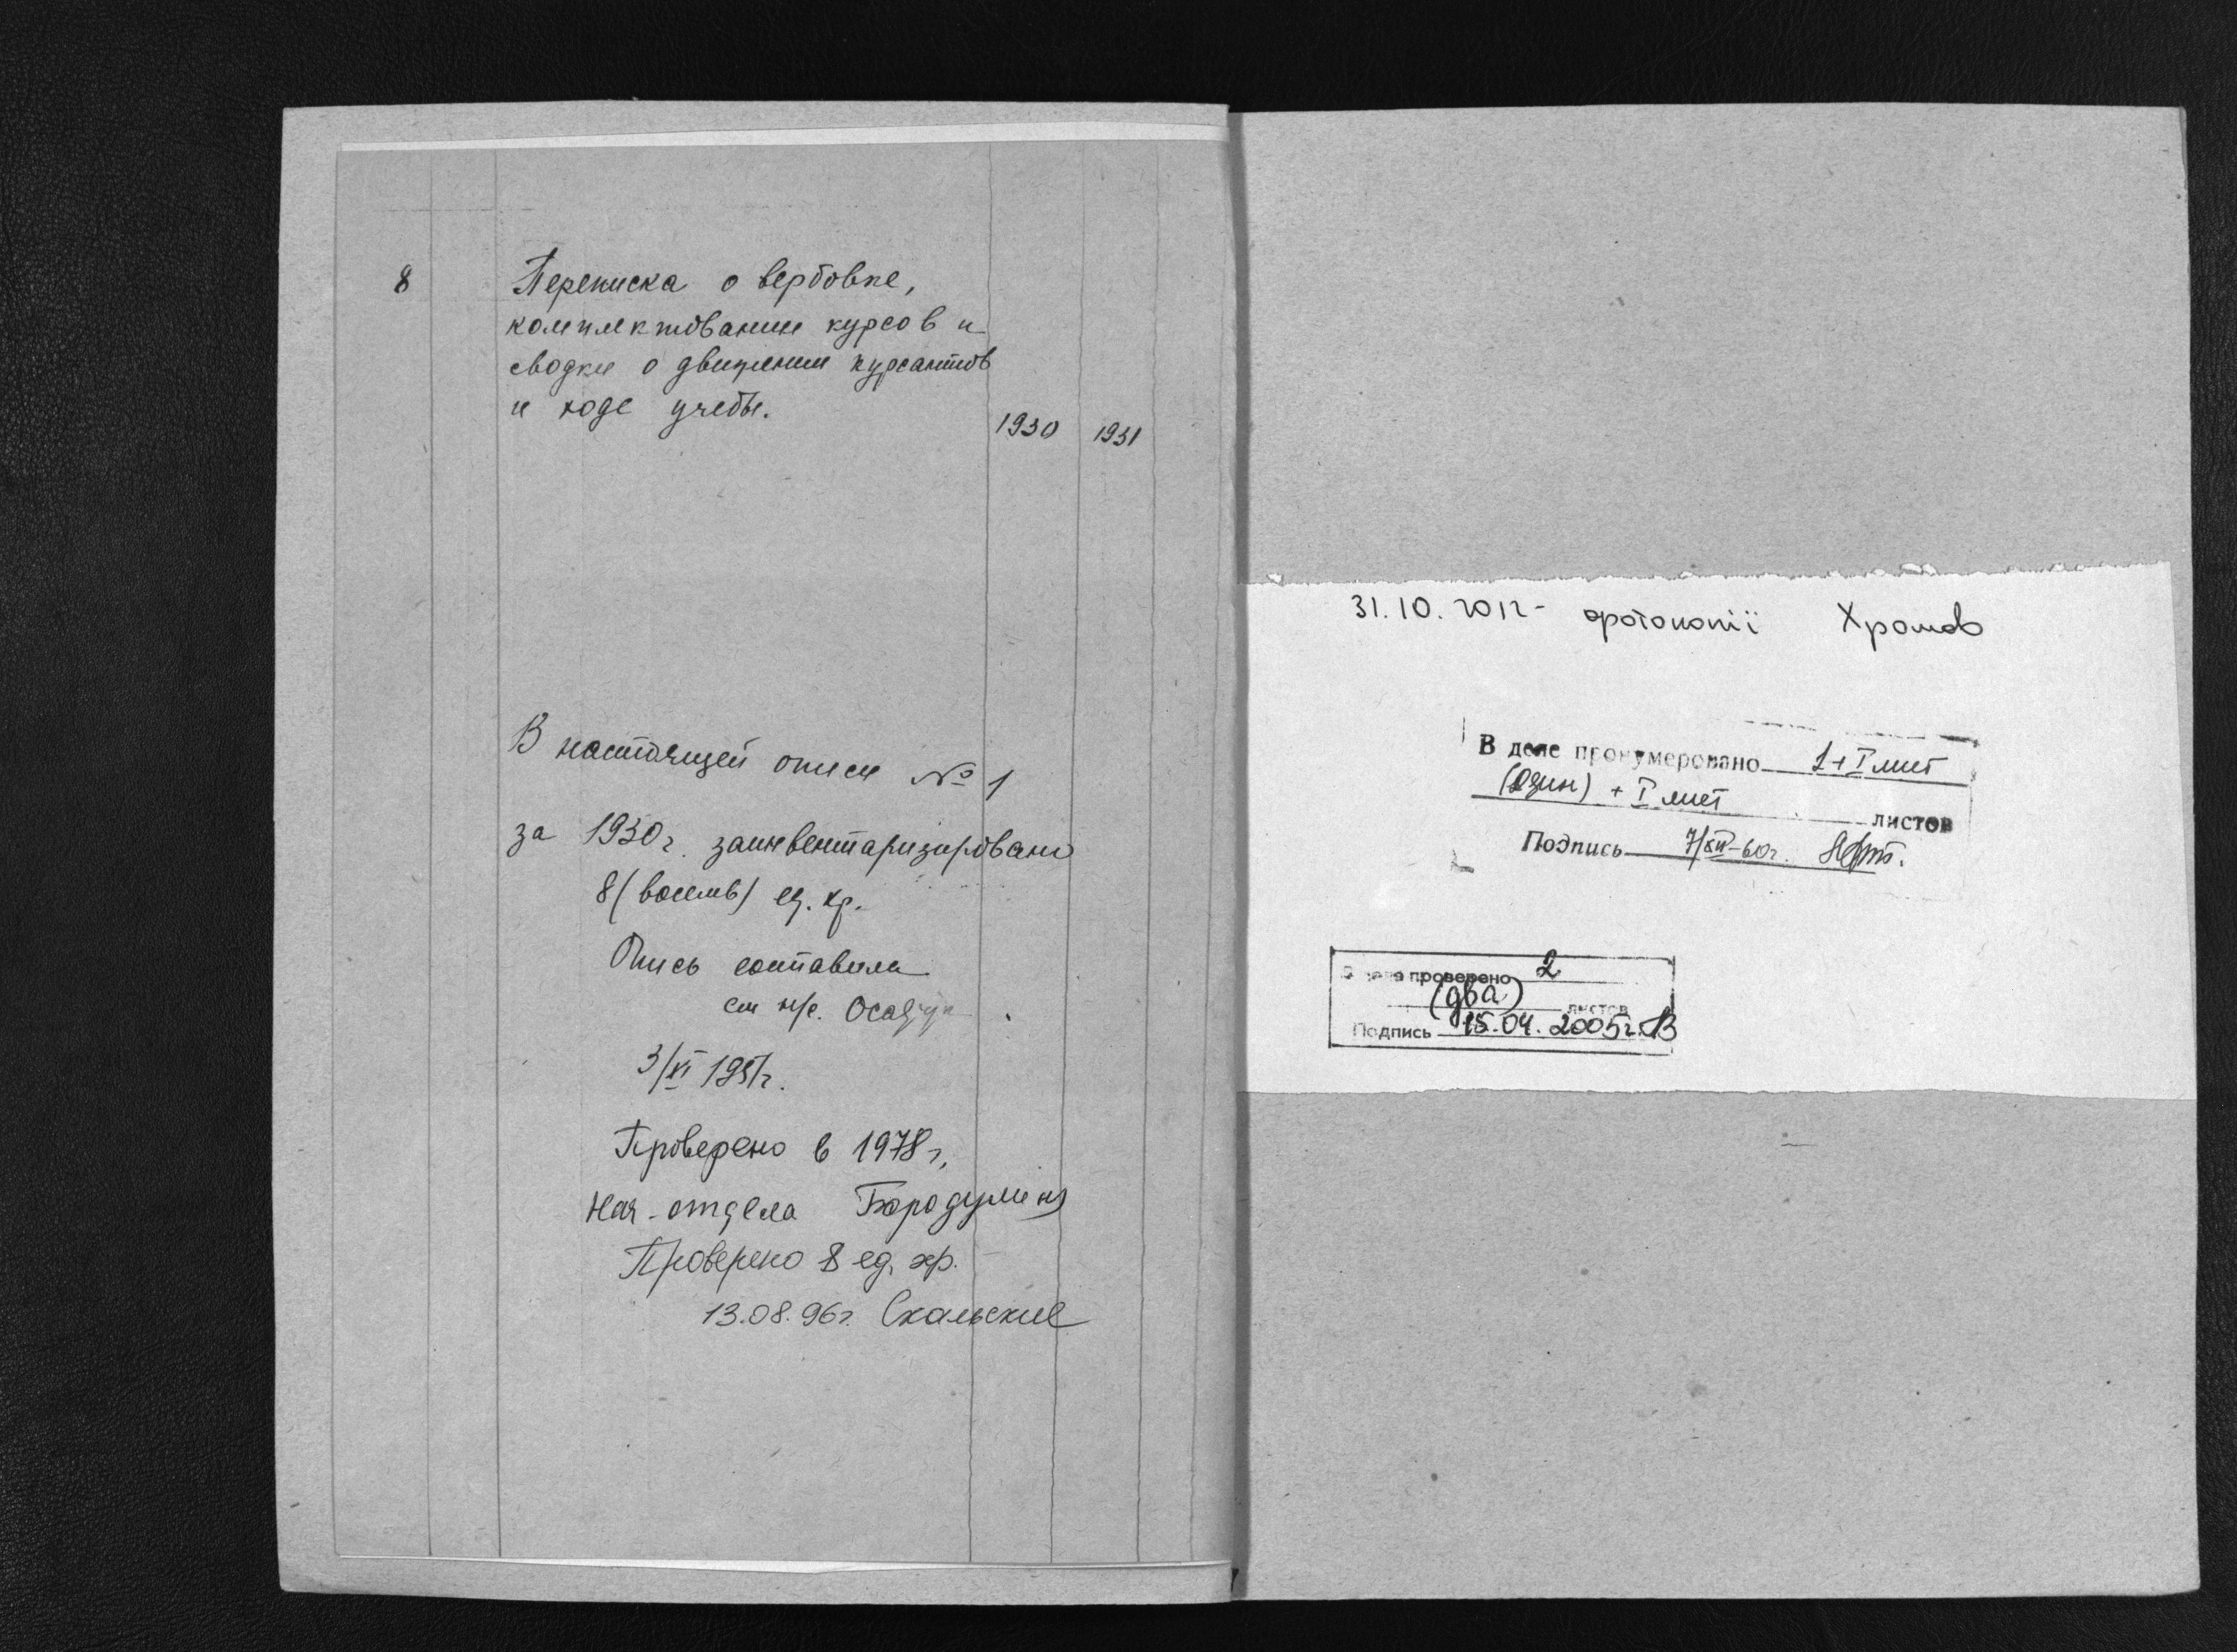 8
Переписка о вербовке,
комплектовании курсов и
сводки о движении курсантов
и ходе учебы.
1930 1931
В настоящей описи № 1
за 1930 г. заинвентаризировано
8 (восемь) ед. хр.
Опись составила
ст н/с.
3/XI 1951г.
Проверено в 1978 г,
Нач-отдела Бородулина
Проверено 8 ед. хр.
13.08.96г. Скальские
31.10.2012 - фотокопії Хромов
В деле пронумеровано 1+I лист
(один) + I лист листов
Подпись 7/XII-60г.
В деле проверено 2
(два) листов
Подпись 15.04.2005г.